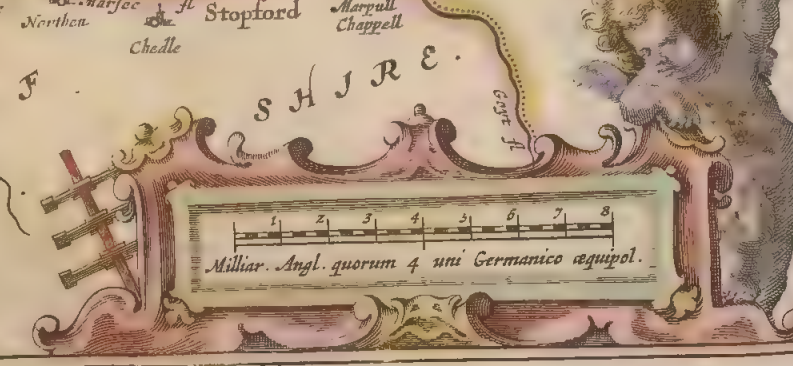 Marsec fl
Stopford
Marpull
Chappell
Northen
Chedle
F
SHIRE.
Goyt fl.
1 2 3 4 5 6 7 8
Milliar. Angl. quorum 4 uni Germanico æquipol.